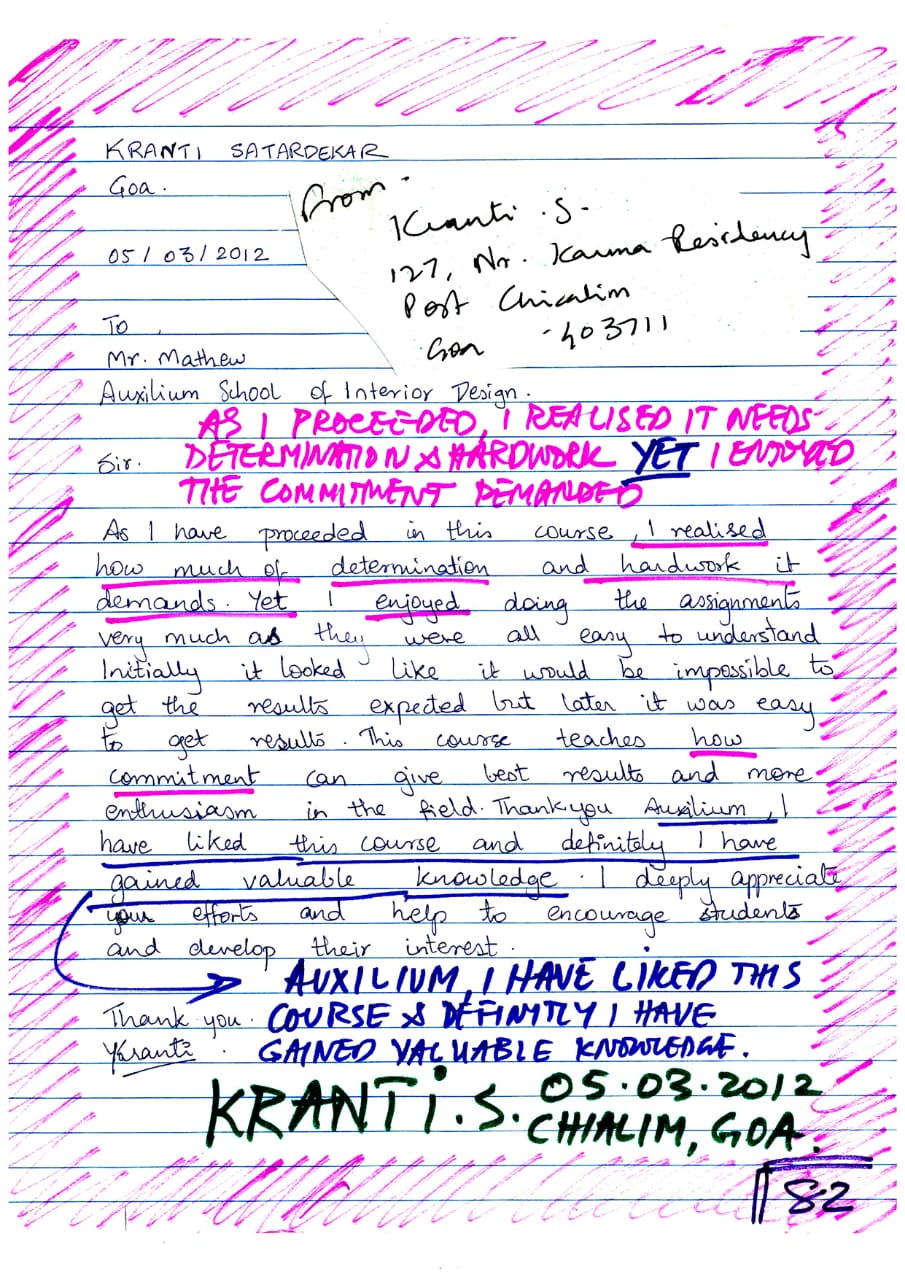 KRANTI SATARDEKAR
Goa.
From.
Kranti .S.
127, Nr. Karma Residency
Post Chicalim
Goa - 403711
05/03/2012
To,
Mr. Mathew
Auxilium School of Interior Design.
AS I PROCEEDED, I REALISED IT NEEDS
DETERMINATION & HARDWORK YET I ENJOYED
THE COMMITMENT DEMANDED
Sir.
As I have proceeded in this course, I realised
how much of determination and hardwork it
demands. Yet I enjoyed doing the assignments
very much as they were all easy to understand
Initially it looked like it would be impossible to
get the results expected but later it was easy
to get results. This course teaches how
commitment can give best results and more
enthusiasm in the field. Thankyou Auxilium, I
have liked this course and definitely I have
gained valuable knowledge. I deeply appreciate
your efforts and help to encourage students
and develop their interest.
AUXILIUM, I HAVE LIKED THIS
COURSE & DEFINITLY I HAVE
GAINED VALUABLE KNOWLEDGE.
Thank you.
Kranti.
KRANTI.S. 05.03.2012
CHIALIM, GOA.
82